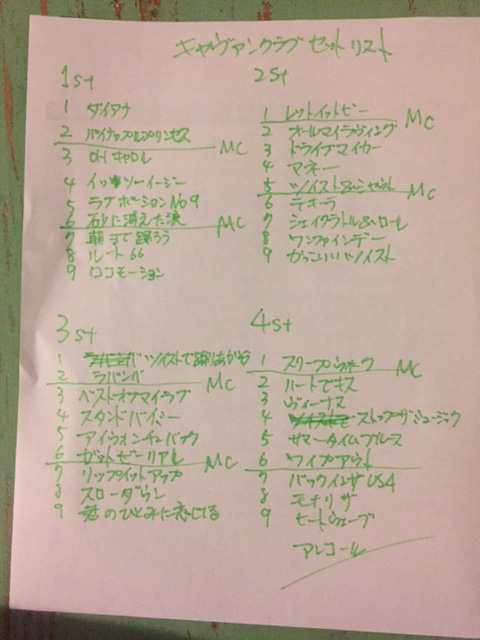 キャヴァンクラブ セットリスト
1st
1 ダイアナ
2 パイナップルプリンセス
MC
3 OH キャロル
4 イッツソーイージー
5 ラブポーションNo9
6 砂に消えた涙
MC
7 朝まで踊ろう
8 ルート66
9 ロコモーション
2st
1 レットイットビー
MC
2 オールマイラヴィング
3 ドライブマイカー
4 マネー
5 ツイスト&シャウト
MC
6 テキーラ
7 シェイクラトル&ロール
8 ワンファインデー
9 かっこいいツイスト
3st
1 ツイストで踊りあかそう
2 ラバンバ
MC
3 ベストオブマイラブ
4 スタンドバイミー
5 アイウォンチュバック
6 ゲットゼーリアル
MC
7 リップイットアップ
8 スローダウン
9 君のひとみに恋してる
4st
1 スリープウォーク
MC
2 ハートでキス
3 ヴィーナス
4 ストップザミュージック
5 サマータイムブルース
6 ワイプアウト
MC
7 バックインザUSA
8 モナリザ
9 ヒートウェーブ
アルコール